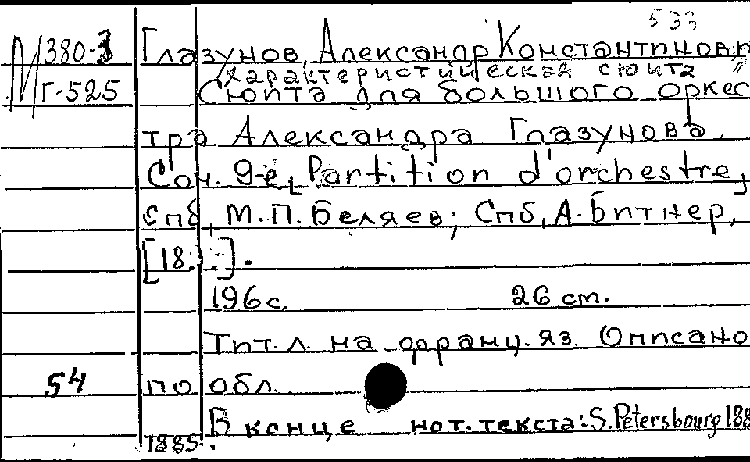 533
М380-3 Глазунов, Александр Константинови
"Характеристическая сюита"
Г-525 Сюита для большого оркес
тра Александра Глазунова.
Соч. 9-е, [Partition d'orchestre,]
Спб, М.П. Беляев; Спб, А. Битнер,
[18..].
196 с. 26 cm.
Тит. л. на франц. яз. Описано
54 по обл.
В конце нот. текста: S. Petersbourg 188
1885.